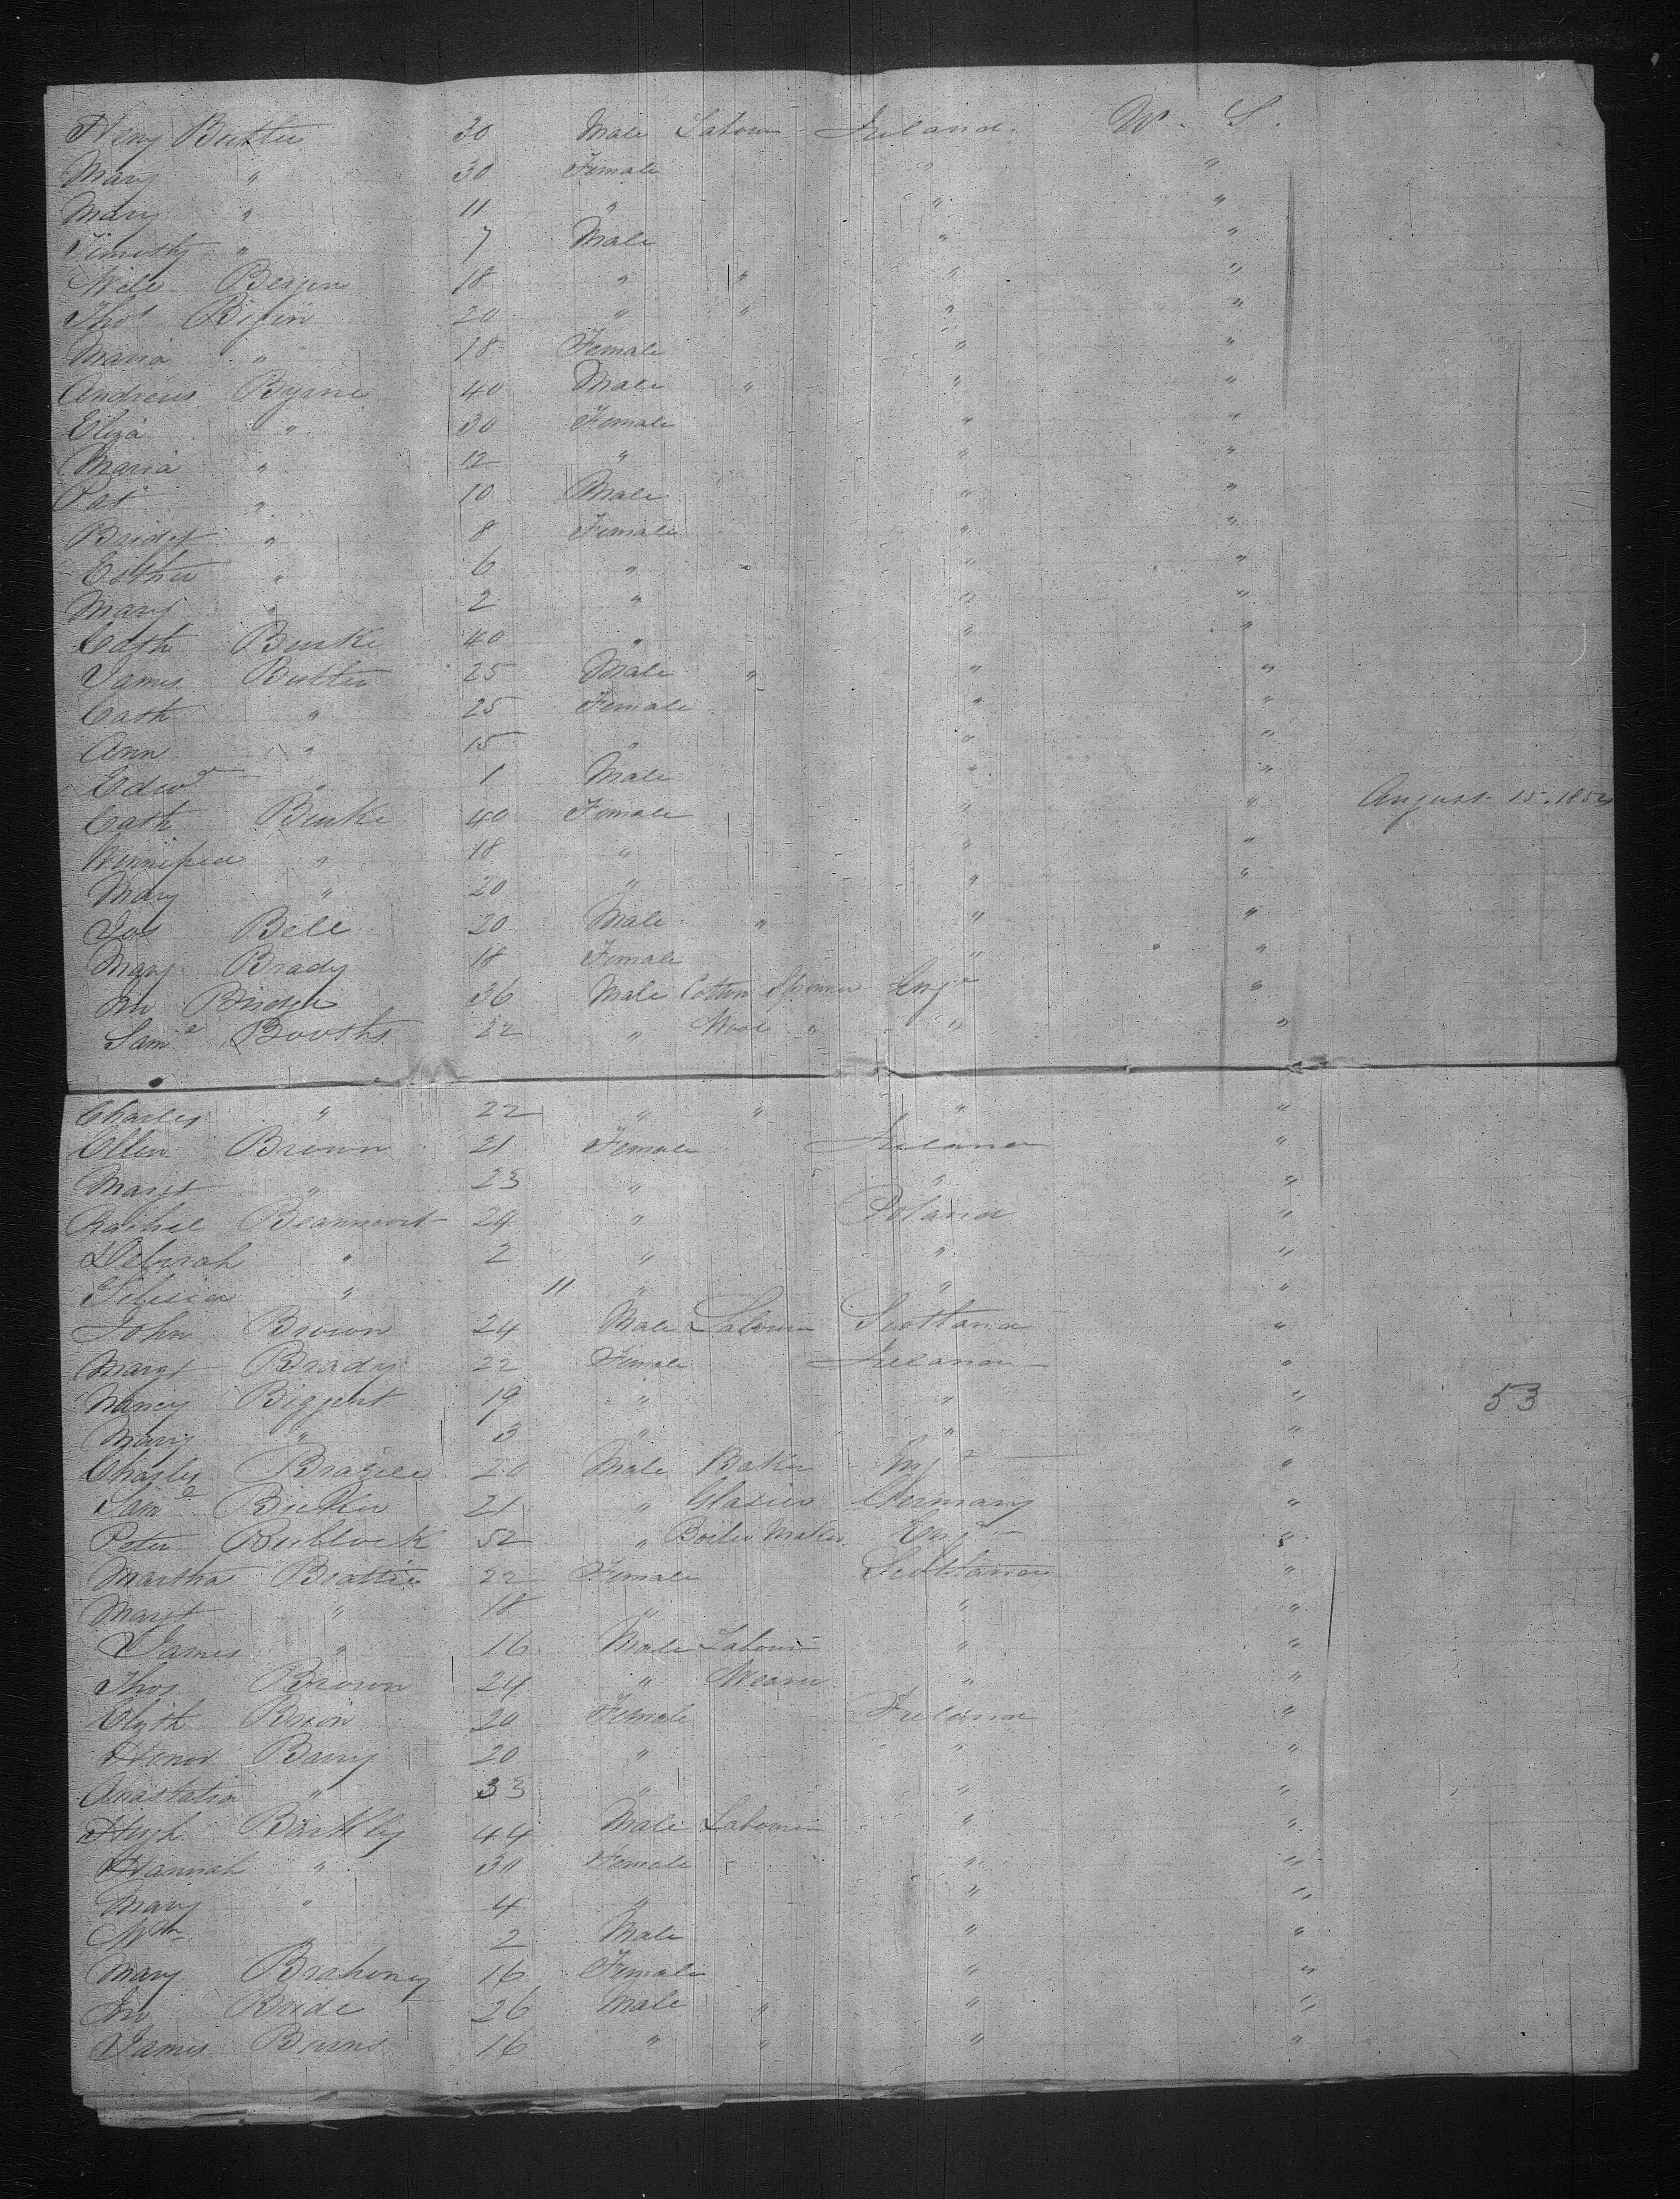 Heny Butler 30 Male Labourer Ireland. W. S.
Mary " 30 Female " "
Mary " 11 " " "
Timothy " 7 Male " "
Will Bergen 18 " " " "
Thos Bigin 20 " " " "
Maria " 18 Female " "
Andrew Byrne 40 Male " " "
Eliza " 30 Female " "
Maria " 12 " " "
Pat " 10 Male " "
Bridgt " 8 Female " "
Esther " 6 " " "
Mary " 2 " " "
Cath Burke 40 " " "
James Butler 25 Male " " "
Cath " 25 Female " "
Ann " 15 " " "
Edwd " 1 Male " "
Cath Burke 40 Female " " August 15. 1854
" 18 " " "
Mary " 20 " " "
Jos Bell 20 Male " " "
Mary Brady 18 Female " "
Jno 36 Male Cotton Spinner Engd "
Saml Booths 22 " Wool " " "
Charles " 22 " " " "
Ellen Brown 21 Female Ireland "
Margt " 23 " " "
Rachel 24 " Poland "
Deborah " 2 " " "
" 11 " " "
John Brown 24 Male Labourer Scotland "
Margt Brady 22 Female Ireland "
Nancy 19 " " " 53
Mary " 3 " " "
Charles 20 Male Baker Engd "
Saml 21 " Glasier Germany "
Peter 52 " Boiler Maker Engd "
Martha Beattie 22 Female Scotland "
Margt " 18 " " "
James " 16 Male Labour " "
Thos Brown 24 " Weaver " "
Elizth 20 Female Ireland "
Honor Barry 20 " " "
Anastatia " 33 " " "
Hugh 44 Male Labourer " "
Hannah " 30 Female " "
Mary " 4 " " "
Wm " 2 Male " "
Mary Brahony 16 Female " "
Jno Bride 26 Male " " "
James Burns 16 " " " "